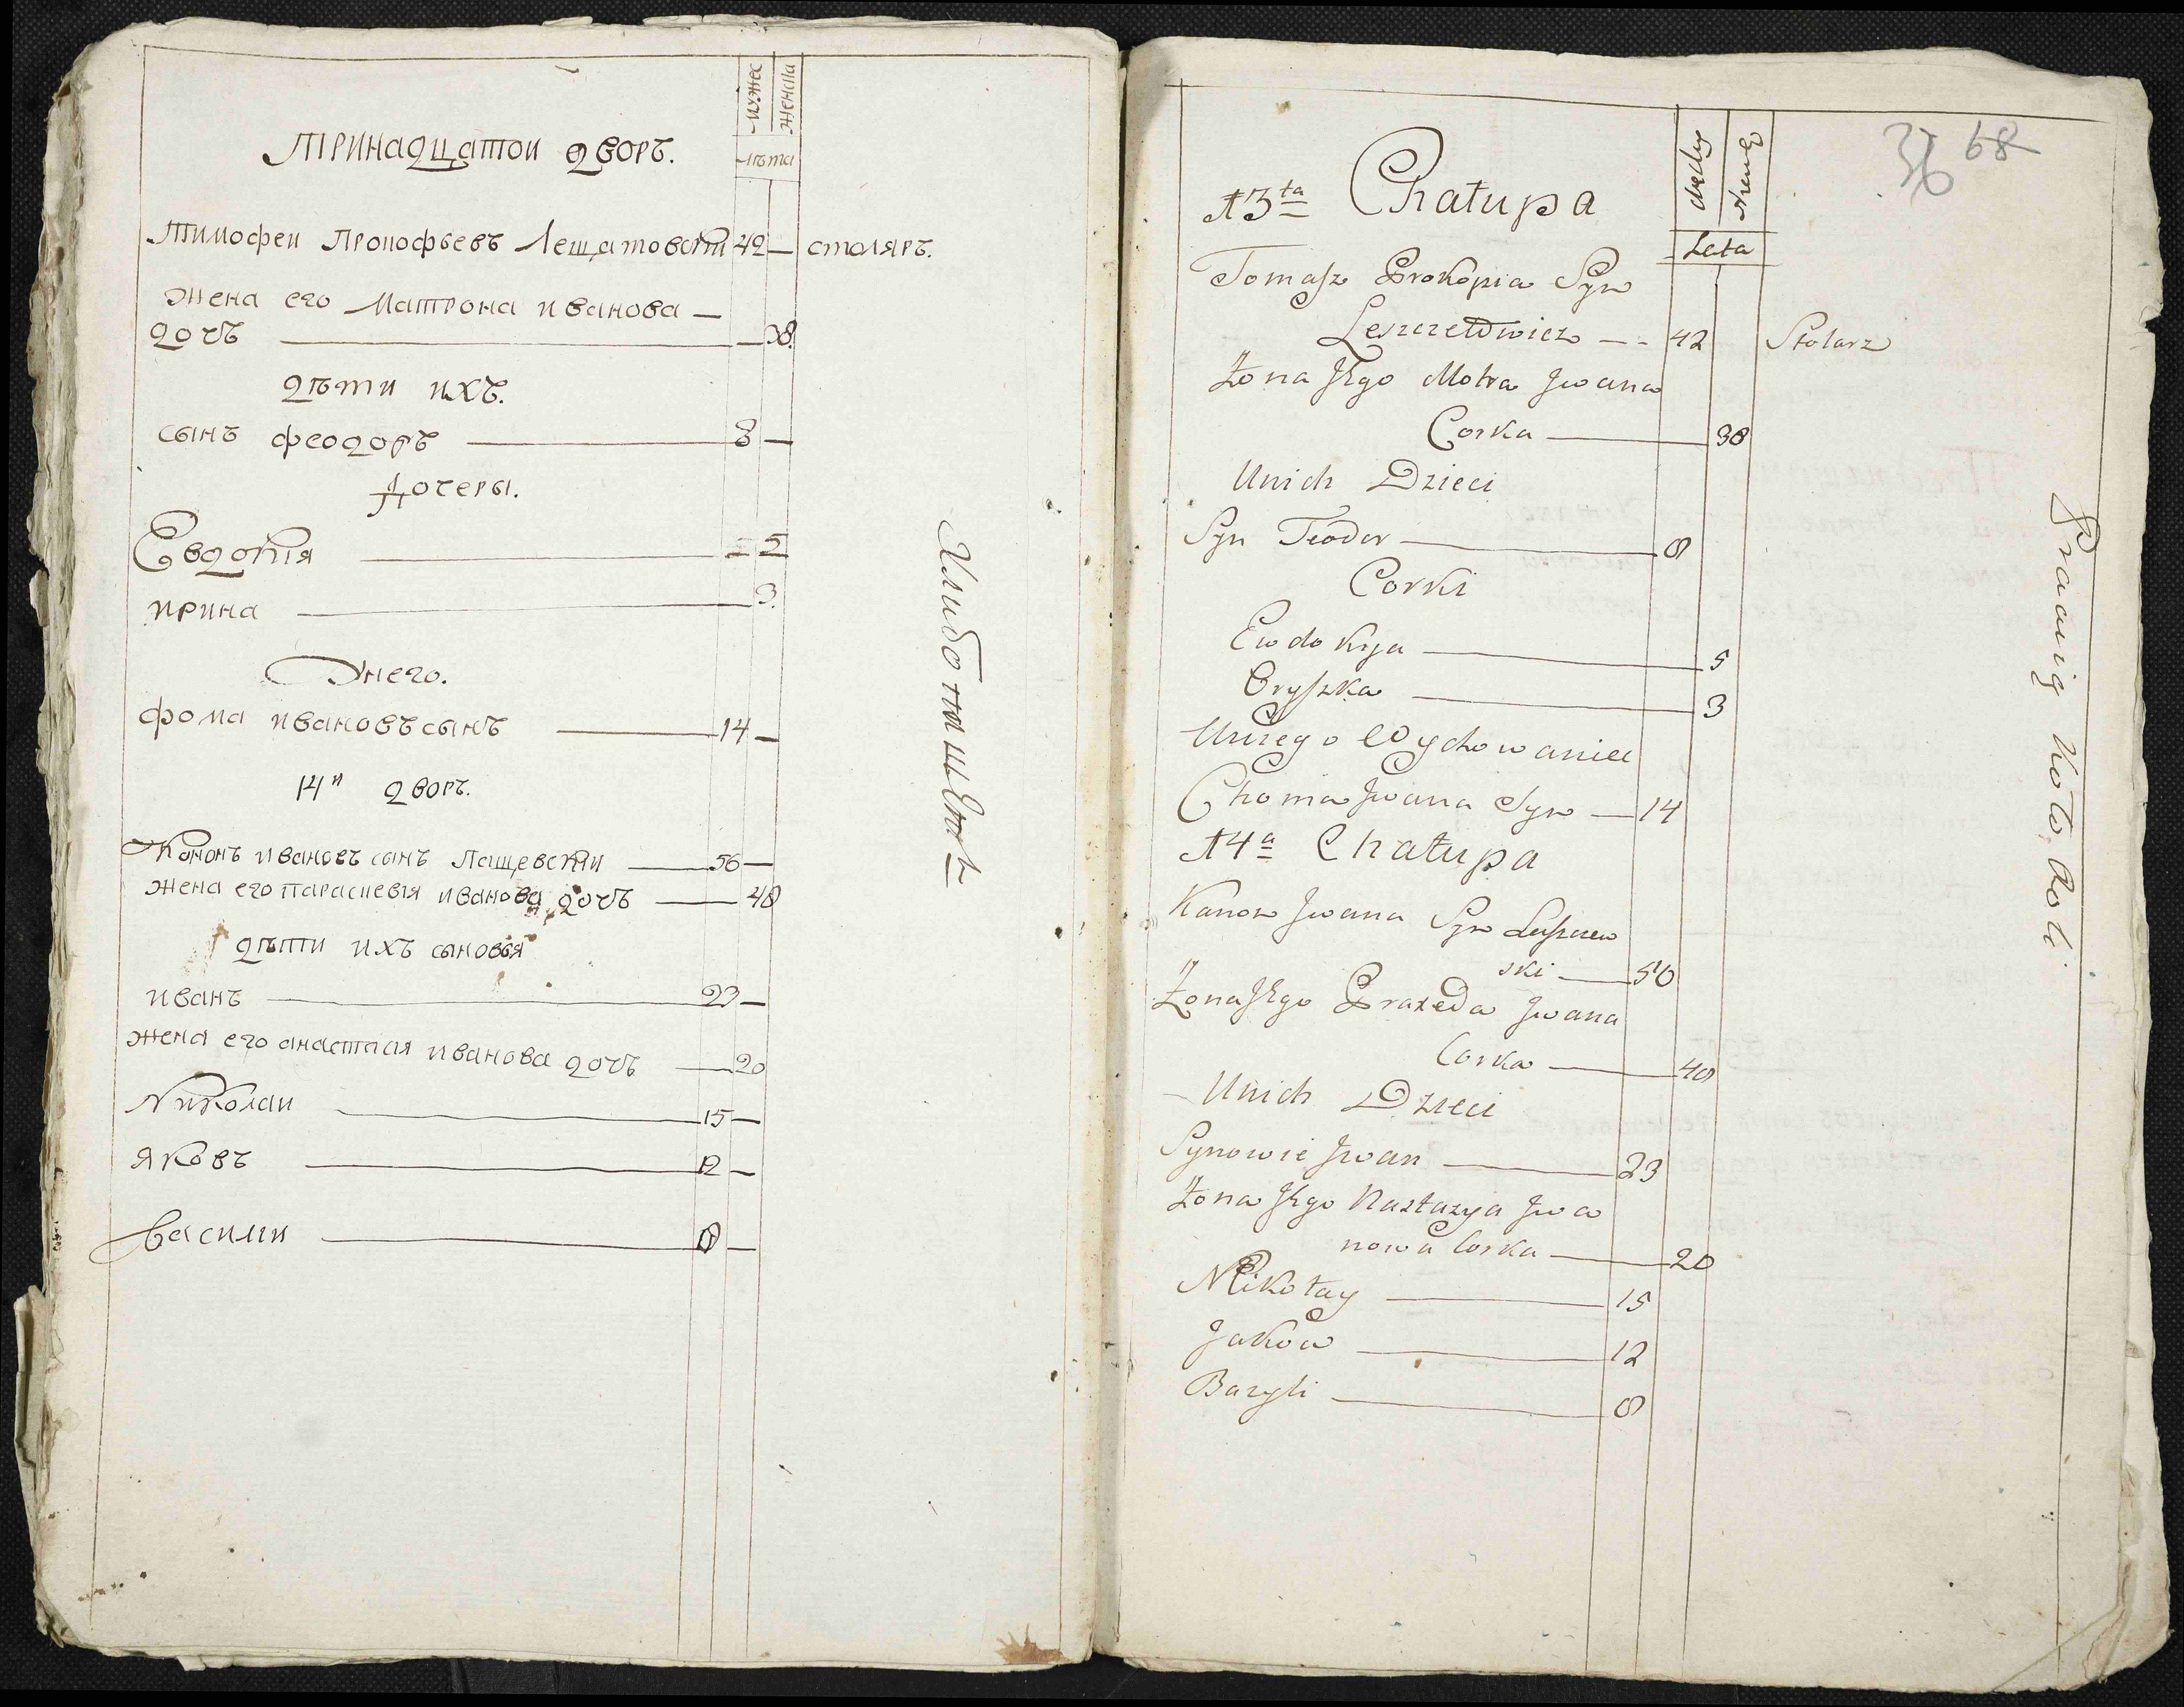 Мужеска
женска
лѣта
тринадцатои дворъ.
Тимофеи Прокофьевъ Лещатовски 42 — столяръ.
жена его Матрона иванова —
дочь — 38.
дѣти ихъ.
сынъ феодоръ — 8 —
Дочеры.
Евдокія — 5
ирина — 3.
Унего.
фома ивановъ сынъ — 14 —
14и дворъ.
Кононъ ивановъ сынъ Лащевски — 56 —
жена его параскевія иванова дочь — 48
дѣти ихъ сыновья
иванъ — 23 —
жена его анастасия иванова дочь — 20
Николаи — 15 —
яковъ — 12 —
василии — 8 —
36 68
Męsky
Żensky
Leta
13ta Chałupa
Tomasz Prokopia Syn
Leszczetowicz — 42 Stolarz
Żona Jego Motra Jwana
Corka — 38
Unich Dzieci
Syn Teodor — 8
Corki
Ewdokya — 5
Oryszka — 3
Uniego Wychowaniec
Choma Jwana Syn — 14
14a Chałupa
Kanon Jwana Syn Laszczew
ski — 56
Żona Jego Praxeda Jwana
Corka — 48
Unich Dzieci
Synowie Jwan — 23
Żona Jego Nastazya Jwa
nowa Corka — 20
Mikołay — 15
Jakow — 12
Bazyli — 8